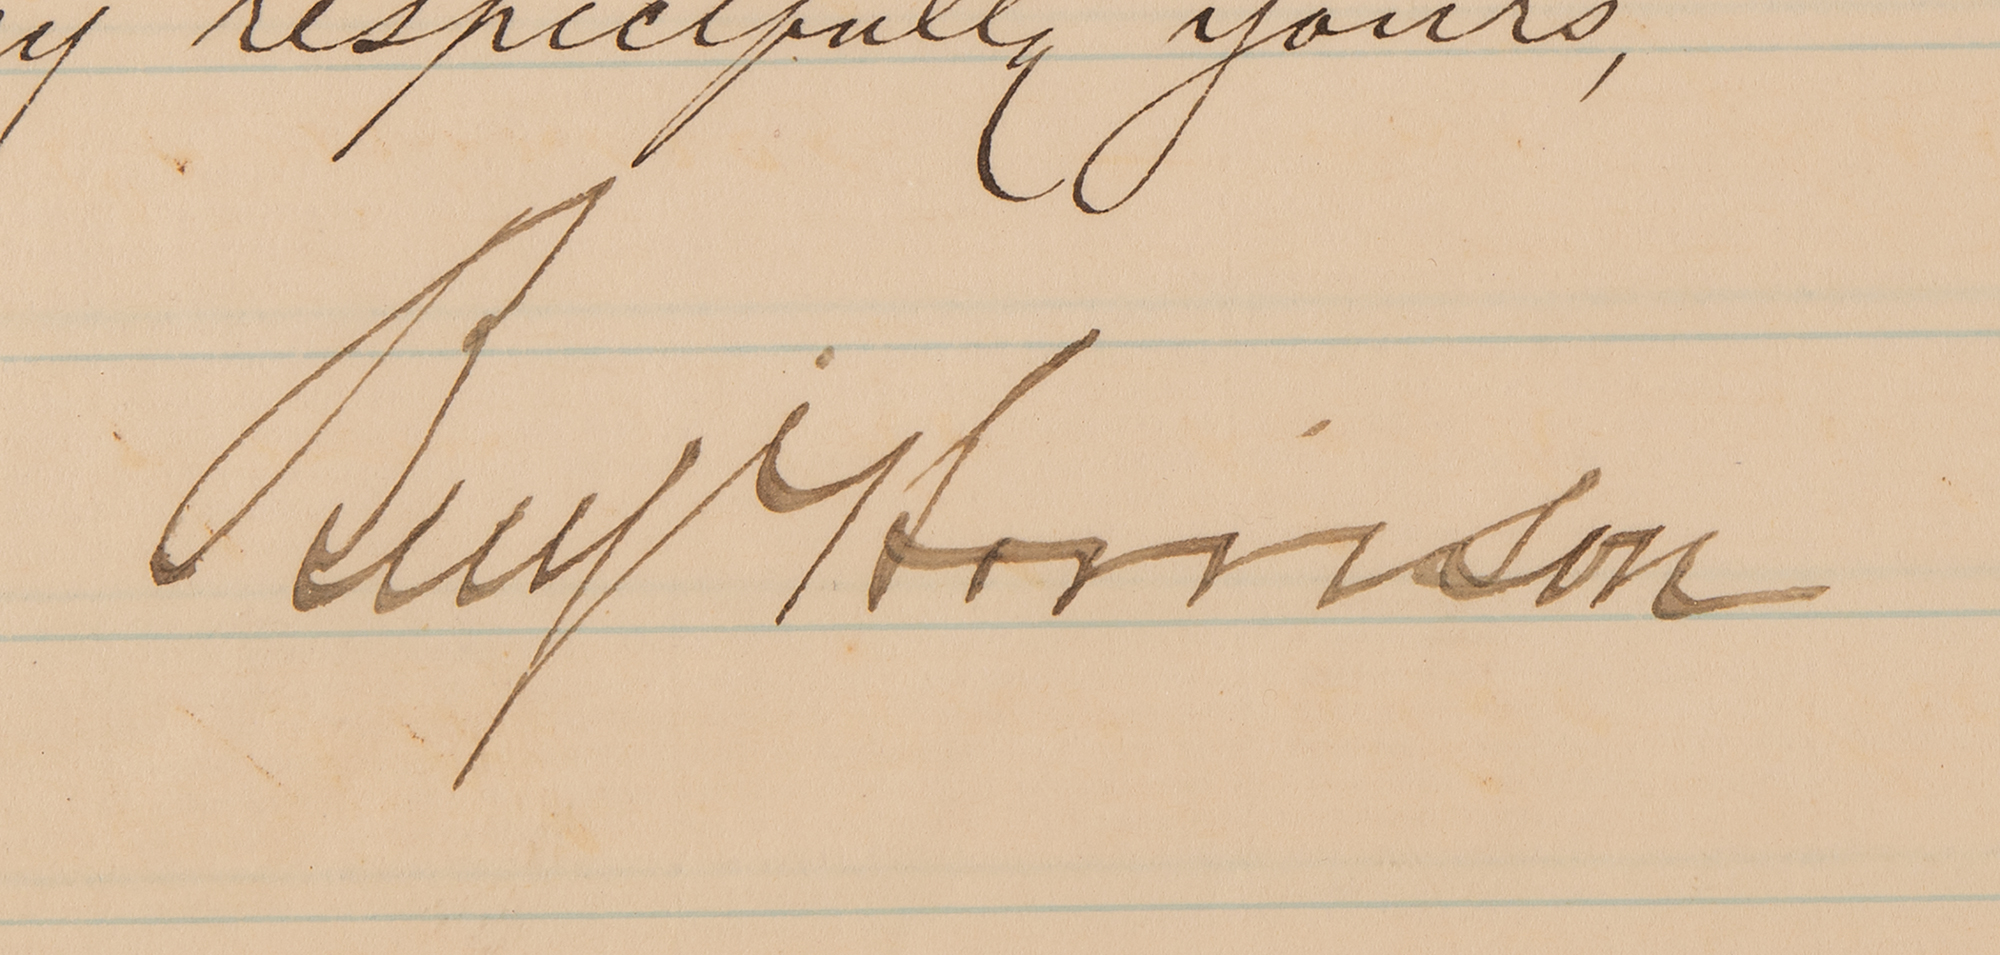 y respectfully yours,
Benj Harrison